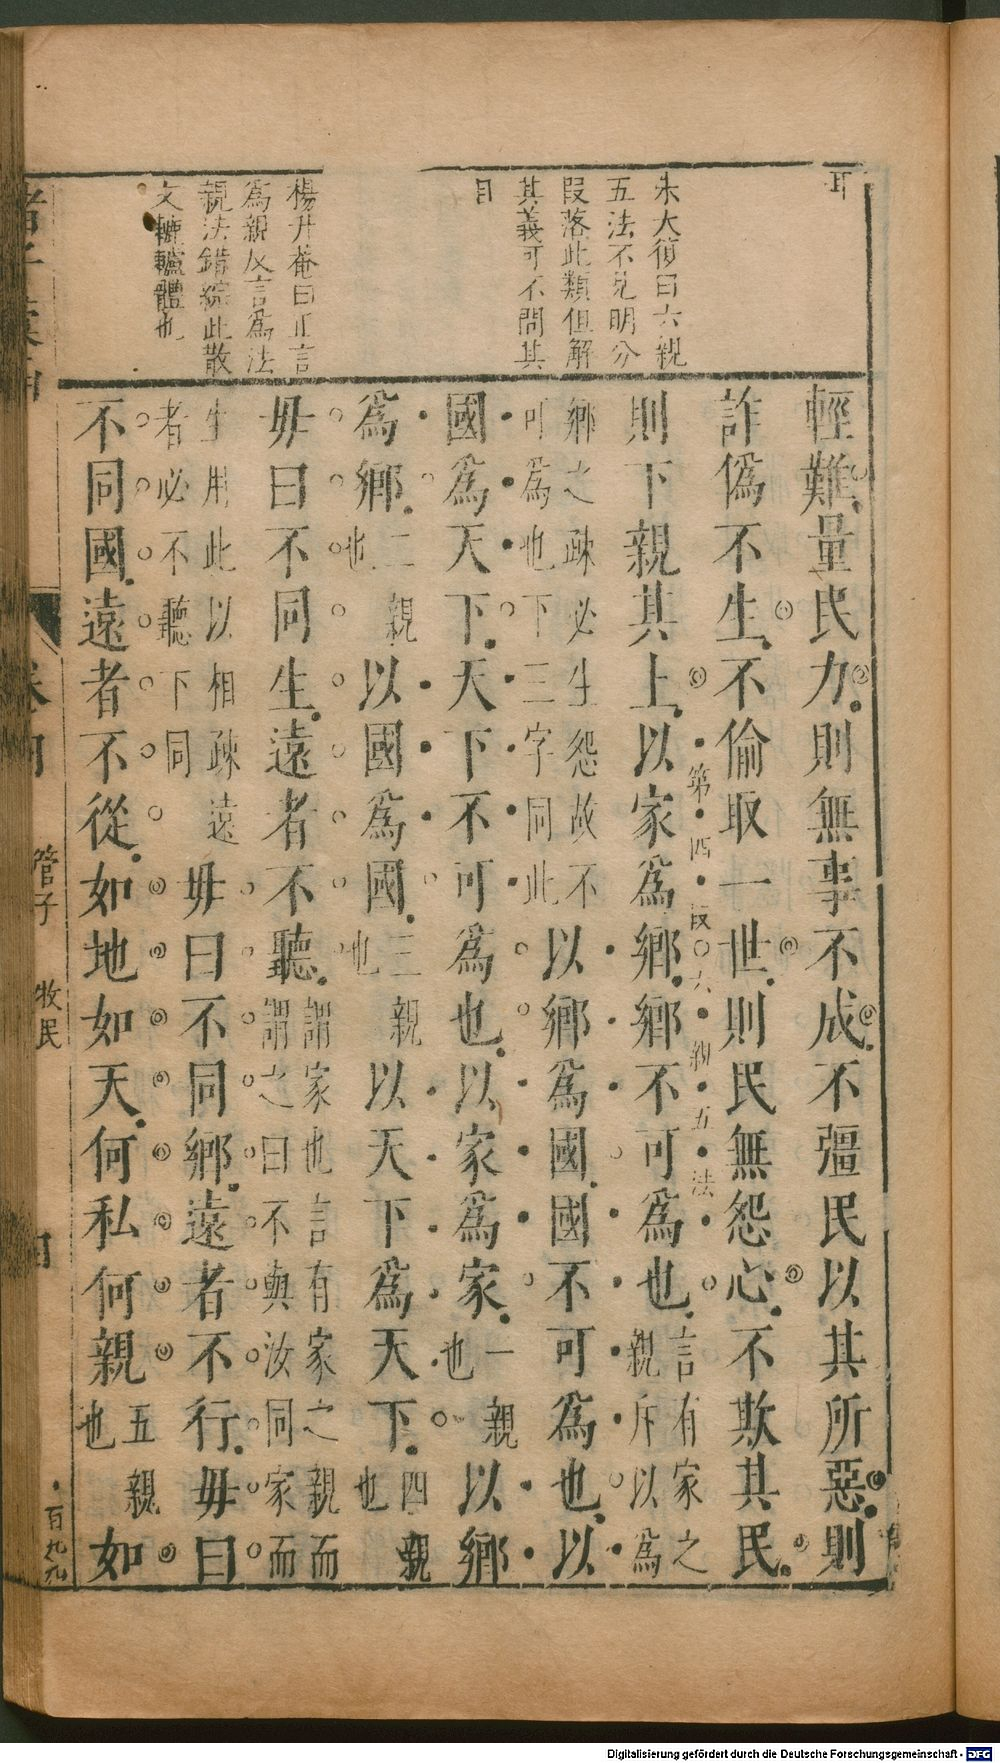 耳
朱大復曰六親
五法不見明分
段落此類但解
其義可不問其
目
楊升菴曰正言
為親反言為法
親法錯綜此散
文轆轤體也
輕難量民力則無事不成不彊民以其所惡則
詐偽不生不偷取一世則民無怨心不欺其民
第四段六親五法
則下親其上以家爲鄉鄉不可爲也言有家之親斥以爲
鄉之疎必生怨故不可爲也下三字同此以鄉爲國國不可爲也以
國爲天下天下不可爲也以家爲家一親也以鄉
爲鄉二親也以國爲國三親也以天下爲天下四親也
毋曰不同生遠者不聽謂家也言有家之親而謂之曰不與汝同家而
生用此以相疎遠者必不聽下同毋曰不同鄉遠者不行毋曰
不同國遠者不從如地如天何私何親五親也如
管子 牧民
百九九
Digitalisierung gefördert durch die Deutsche Forschungsgemeinschaft - DFG